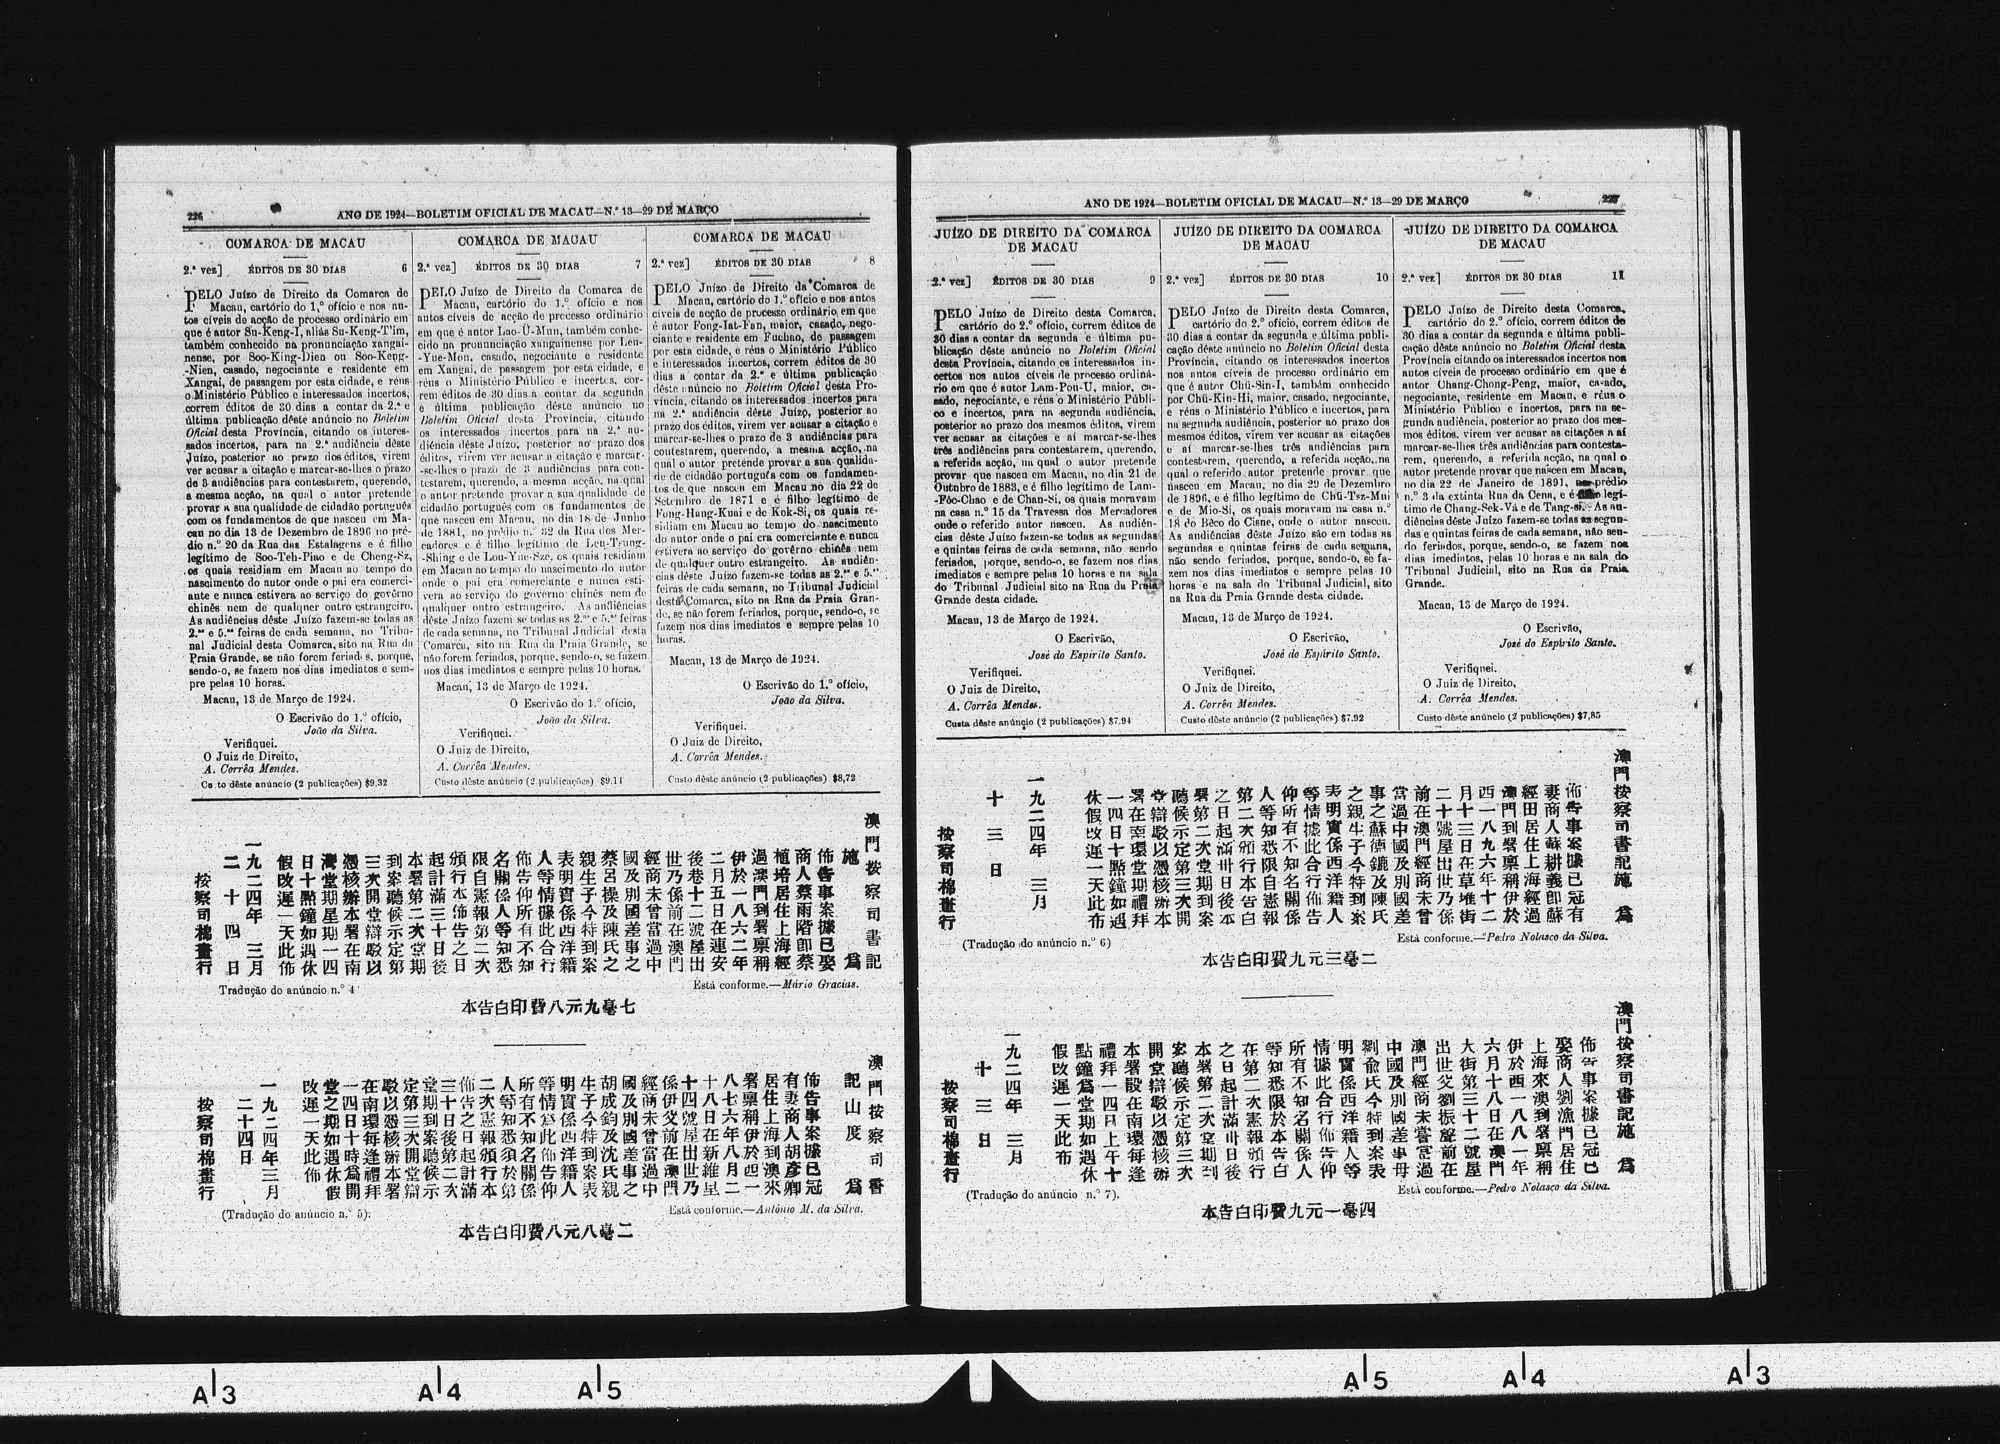 226
ANO DE 1924—BOLETIM OFICIAL DE MACAU—N.º 13—29 DE MARÇO
COMARCA DE MACAU
2.ª vez] ÉDITOS DE 30 DIAS 6
PELO Juízo de Direito da Comarca de
Macau, cartório do 1.º ofício e nos au-
tos cíveis de acção de processo ordinário em
que é autor Su-Keng-I, aliás Su-Keng-T'im,
também conhecido na pronunciação xangai-
nense, por Soo-King-Dien ou Soo-Keng-
-Nien, casado, negociante e residente em
Xangai, de passagem por esta cidade, e réus
o Ministério Público e interessados incertos,
correm éditos de 30 dias a contar da 2.ª e
última publicação dêste anúncio no Boletim
Oficial desta Província, citando os interes-
sados incertos, para na 2.ª audiência dêste
Juízo, posterior ao prazo dos éditos, virem
ver acusar a citação e marcar-se-lhes o prazo
de 3 audiências para contestarem, querendo,
a mesma acção, na qual o autor pretende
provar a sua qualidade de cidadão português
com os fundamentos de que nasceu em Ma-
cau no dia 13 de Dezembro de 1896 no pré-
dio n.º 20 da Rua das Estalagens e é filho
legítimo de Soo-Teh-Piao e de Cheng-Sz,
os quais residiam em Macau ao tempo do
nascimento do autor onde o pai era comerci-
ante e nunca estivera ao serviço do govêrno
chinês nem de qualquer outro estrangeiro.
As audiências dêste Juízo fazem-se todas as
2.ªˢ e 5.ªˢ feiras de cada semana, no Tribu-
nal Judicial desta Comarca, sito na Rua da
Praia Grande, se não forem feriados, porque,
sendo-o, se fazem nos dias imediatos e sem-
pre pelas 10 horas.
Macau, 13 de Março de 1924.
O Escrivão do 1.º ofício,
João da Silva.
Verifiquei.
O Juiz de Direito,
A. Corrêa Mendes.
Custo dêste anúncio (2 publicações) $9,32
COMARCA DE MACAU
2.ª vez] ÉDITOS DE 30 DIAS 7
PELO Juízo de Direito da Comarca de
Macau, cartório do 1.º ofício e nos
autos cíveis de acção de processo ordinário
em que é autor Lao-Ü-Mun, também conhe-
cido na pronunciação xanguinense por Leu-
-Yue-Mon, casado, negociante e residente
em Xangai, de passagem por esta cidade, e
réus o Ministério Público e incertos, cor-
rem éditos de 30 dias a contar da segunda
e última publicação dêste anúncio no
Boletim Oficial desta Província, citando
os interessados incertos para na 2.ª au-
diência dêste Juízo, posterior ao prazo dos
éditos, virem ver acusar a citação e marcar-
-se-lhes o prazo de 3 audiências para con-
testarem, querendo, a mesma acção, na qual
o autor pretende provar a sua qualidade de
cidadão português com os fundamentos de
que nasceu em Macau, no dia 18 de Junho
de 1881, no prédio n.º 32 da Rua dos Mer-
cadores e é filho legítimo de Leu-Tsung-
-Shing e de Lou-Yue-Sze, os quais residiam
em Macau ao tempo do nascimento do autor
onde o pai era comerciante e nunca esti-
vera ao serviço do governo chinês nem de
qualquer outro estrangeiro. As audiências
dêste Juízo fazem se todas as 2.ªˢ e 5.ªˢ feiras
de cada semana, no Tribunal Judicial desta
Comarca, sito na Rua da Praia Grande, se
não forem feriados, porque, sendo-o, se fazem
nos dias imediatos e sempre pelas 10 horas.
Macau, 13 de Março de 1924.
O Escrivão do 1.º ofício,
João da Silva.
Verifiquei.
O Juiz de Direito,
A. Corrêa Mendes.
Custo dêste anúncio (2 publicações) $9,14
COMARCA DE MACAU
2.ª vez] ÉDITOS DE 30 DIAS 8
PELO Juízo de Direito da Comarca de
Macau, cartório do 1.º ofício e nos autos
cíveis de acção de processo ordinário, em que
é autor Fong-Iat-Fan, maior, casado, nego-
ciante e residente em Fuchao, de passagem
por esta cidade, e réus o Ministério Público
e interessados incertos, correm éditos de 30
dias a contar da 2.ª e última publicação
dêste anúncio no Boletim Oficial desta Pro-
víncia, citando os interessados incertos para
na 2.ª audiência dêste Juízo, posterior ao
prazo dos éditos, virem ver acusar a citação e
marcar-se-lhes o prazo de 3 audiências para
contestarem, querendo, a mesma acção, na
qual o autor pretende provar a sua qualida-
de de cidadão português com os fundamen-
tos de que nasceu em Macau no dia 22 de
Setembro de 1871 e é filho legítimo de
Fong-Hang-Kuai e de Kok-Si, os quais re-
sidiam em Macau ao tempo do nascimento
do autor onde o pai era comerciante e nunca
estivera ao serviço do govêrno chinês nem
de qualquer outro estrangeiro. As audiên-
cias dêste Juízo fazem-se todas as 2.ªˢ e 5.ªˢ
feiras de cada semana, no Tribunal Judicial
desta Comarca, sito na Rua da Praia Gran-
de, se não forem feriados, porque, sendo-o, se
fazem nos dias imediatos e sempre pelas 10
horas.
Macau, 13 de Março de 1924.
O Escrivão do 1.º ofício,
João da Silva.
Verifiquei.
O Juiz de Direito,
A. Corrêa Mendes.
Custo dêste anúncio (2 publicações) $8,72
澳門按察司書記
施 爲
佈告事案據已娶
商人蔡雨階卽蔡
植培居住上海經
過澳門到署稟稱
伊於一八六二年
二月五日在連安
後巷十二號屋出
世乃係前在澳門
經商未曾當過中
國及別國差事之
蔡呂操及陳氏之
親生子今特到案
表明實係西洋籍
人等情據此合行
佈告仰所有不知
名關係人等知悉
限自憲報第二次
頒行本佈告之日
起計滿三十日後
本署第二次堂期
到案聽候示定第
三次開堂辯駁以
憑核辦本署在南
灣堂期星期一四
日十點鐘如遇休
假改遲一天此佈
一九二四年 三月
二十四日
按察司棉畫行
Tradução do anúncio n.º 4
Está conforme.—Mário Gracias.
本告白印費八元九毫七
澳門按察司書
記山度 爲
佈告事案據已冠
有妻商人胡彥卿
居住上海到澳來
署稟稱伊於西一
八七六年八月二
十八日在新維呈
十四號屋出世乃
係伊父前在澳門
經商未曾當過中
國及別國差事之
胡成鈞及沈氏親
生子今特到案表
明實係西洋籍人
等情爲此佈告仰
所有不知名關係
人等知悉須於第
二次憲報頒行本
佈告之日起計滿
三十日後第二次
堂期到案聽候示
定第三次開堂辯
駁以憑核辦本署
在南環每逢禮拜
一四日十時爲開
堂之期如遇休假
改遲一天此佈
一九二四年三月
二十四日
按察司棉畫行
(Tradução do anúncio n.º 5).
Está conforme.—António M. da Silva.
本告白印費八元八毫二
ANO DE 1924—BOLETIM OFICIAL DE MACAU—N.º 13—29 DE MARÇO
227
JUÍZO DE DIREITO DA COMARCA
DE MACAU
2.ª vez] ÉDITOS DE 30 DIAS 9
PELO Juízo de Direito desta Comarca,
cartório do 2.º ofício, correm éditos de
30 dias a contar da segunda e última pu-
blicação dêste anúncio no Boletim Oficial
desta Província, citando os interessados in-
certos nos autos cíveis de processo ordiná-
rio em que é autor Lam-Pou-U, maior, ca-
sado, negociante, e réus o Ministério Públi-
co e incertos, para na segunda audiência,
posterior ao prazo dos mesmos éditos, virem
ver acusar as citações e aí marcar-se-lhes
três audiências para contestarem, querendo,
a referida acção, na qual o autor pretende
provar que nasceu em Macau, no dia 21 de
Outubro de 1883, e é filho legítimo de Lam-
-Fóc-Chao e de Chan-Si, os quais moravam
na casa n.º 15 da Travessa dos Mercadores
onde o referido autor nasceu. As audiên-
cias dêste Juízo fazem-se todas as segundas
e quintas feiras de cada semana, não sendo
feriados, porque, sendo-o, se fazem nos dias
imediatos e sempre pelas 10 horas e na sala
do Tribunal Judicial sito na Rua da Praia
Grande desta cidade.
Macau, 13 de Março de 1924.
O Escrivão,
José do Espírito Santo.
Verifiquei.
O Juiz de Direito,
A. Corrêa Mendes.
Custa dêste anúncio (2 publicações) $7.94
JUÍZO DE DIREITO DA COMARCA
DE MACAU
2.ª vez] ÉDITOS DE 30 DIAS 10
PELO Juízo de Direito desta Comarca,
cartório do 2.º ofício, correm éditos de
30 dias a contar da segunda e última publi-
cação dêste anúncio no Boletim Oficial desta
Província, citando os interessados incertos
nos autos cíveis de processo ordinário em
que é autor Chü-Sin-I, também conhecido
por Chü-Kin-Hi, maior, casado, negociante,
e réus o Ministério Público e incertos, para
na segunda audiência, posterior ao prazo dos
mesmos éditos, virem ver acusar as citações
e aí marcar-se-lhes três audiências para
contestarem, querendo, a referida acção, na
qual o referido autor pretende provar que
nasceu em Macau, no dia 29 de Dezembro
de 1896, e é filho legítimo de Chü-Tsz-Mui
e de Mio-Si, os quais moravam na casa n.º
18 do Bêco do Cisne, onde o autor nasceu.
As audiências dêste Juízo são em todas as
segundas e quintas feiras de cada semana,
não sendo feriados, porque, sendo-o, se fa-
zem nos dias imediatos e sempre pelas 10
horas e na sala do Tribunal Judicial, sito
na Rua da Praia Grande desta cidade.
Macau, 13 de Março de 1924.
O Escrivão,
José do Espírito Santo.
Verifiquei.
O Juiz de Direito,
A. Corrêa Mendes.
Custo dêste anúncio (2 publicações) $7.92
JUÍZO DE DIREITO DA COMARCA
DE MACAU
2.ª vez] ÉDITOS DE 30 DIAS 11
PELO Juízo de Direito desta Comarca,
cartório do 2.º ofício, correm éditos de
30 dias a contar da segunda e última publi-
cação dêste anúncio no Boletim Oficial desta
Província citando os interessados incertos nos
autos cíveis de processo ordinário em que é
autor Chang-Chong-Peng, maior, casado,
negociante, residente em Macau, e réus o
Ministério Público e incertos, para na se-
gunda audiência, posterior ao prazo dos mes-
mos éditos, virem ver acusar as citações a aí
marcar-se-lhes três audiências para contesta-
rem, querendo, a referida acção, na qual o
autor pretende provar que nasceu em Macau,
no dia 22 de Janeiro de 1891, no prédio
n.º 3 da extinta Rua da Cena, e é filho legí-
timo de Chang-Sek-Vá e de Tang-si. As au-
diências dêste Juízo fazem-se todas as segun-
das e quintas feiras de cada semana, não sen-
do feriados, porque, sendo-o, se fazem nos
dias imediatos, pelas 10 horas e na sala do
Tribunal Judicial, sito na Rua da Praia
Grande.
Macau, 13 de Março de 1924.
O Escrivão,
José do Espírito Santo.
Verifiquei.
O Juiz de Direito,
A. Corrêa Mendes.
Custo dêste anúncio (2 publicações) $7,85
澳門按察司書記施 爲
佈告事案據已冠有
妻商人蘇耕義卽蘇
經田居住上海經過
澳門到署稟稱伊於
西一八九六年十二
月十三日在草堆街
二十號屋出世乃係
前在澳門經商未曾
當過中國及別國差
事之蘇德鑣及陳氏
之親生子今特到案
表明實係西洋籍人
等情據此合行佈告
仰所有不知名關係
人等知悉限自憲報
第二次頒行本告白
之日起滿卅日後本
署第二次堂期到案
聽候示定第三次開
堂辯駁以憑核辦本
署在南環堂期禮拜
一四日十點鐘如遇
休假改遲一天此布
一九二四年 三月
十三日
按察司棉畫行
(Tradução do anúncio n.º 6)
Está conforme.—Pedro Nolasco da Silva.
本告白印費九元三毫二
澳門按察司書記施 爲
佈告事案據已冠已
娶商人劉漁門居住
上海來澳到署稟稱
伊於西一八八一年
六月十八日在澳門
大街第三十二號屋
出世父劉振聲前在
澳門經商未嘗當過
中國及別國差事母
劉俞氏今特到案表
明實係西洋籍人等
情據此合行佈告仰
所有不知名關係人
等知悉限於本告白
在第二次憲報頒行
之日起計滿卅日後
本署第二次堂期到
案聽候示定第三次
開堂辯駁以憑核辦
本署設在南環每逢
禮拜一四日上午十
點鐘爲堂期如遇休
假改遲一天此布
一九二四年 三月
十三日
按察司棉畫行
(Tradução do anúncio n.º 7).
Está conforme.—Pedro Nolasco da Silva.
本告白印費九元一毫四
A3
A4
A5
A5
A4
A3